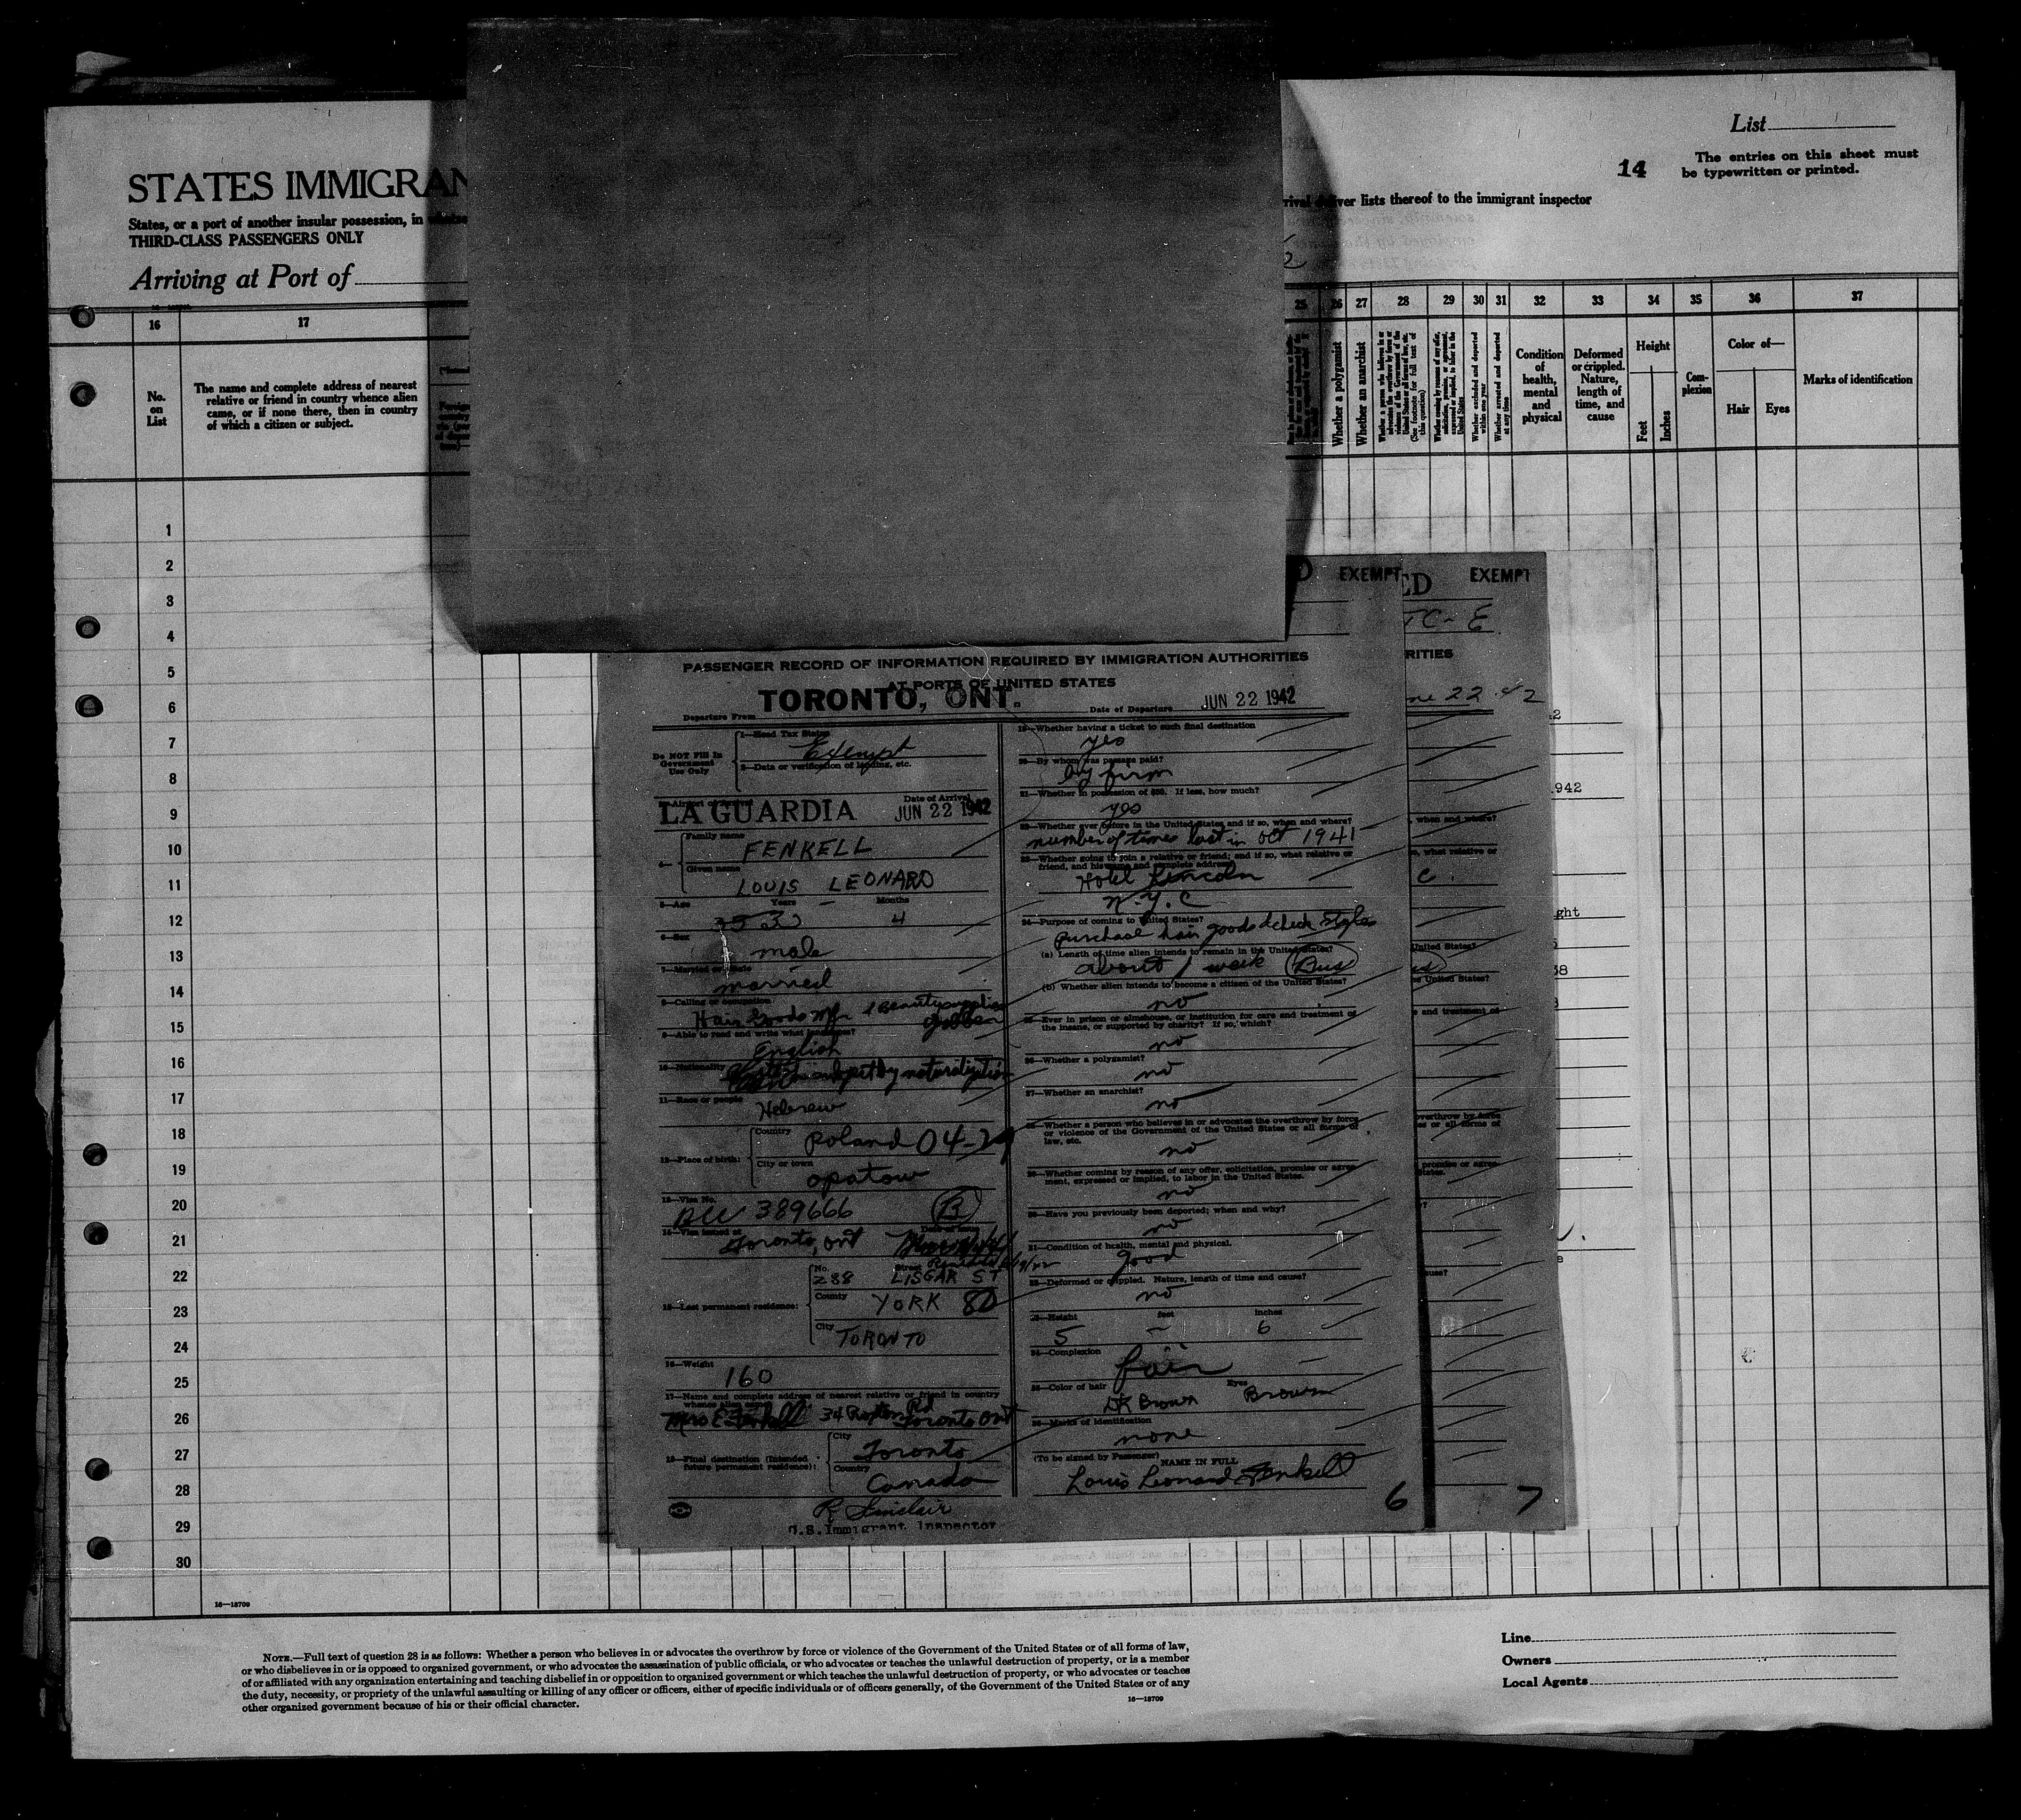 List
14
The entries on this sheet must
be typewritten or printed.
STATES IMMIGRAN
rival deliver lists thereof to the immigrant inspector
States, or a port of another insular possession, in
THIRD-CLASS PASSENGERS ONLY
Arriving at Port of
16 17 25 26 27 28 29 30 31 32 33 34 35 36 37
No.
on
List
The name and complete address of nearest
relative or friend in country whence alien
came, or if none there, then in country
of which a citizen or subject.
Whether a polygamist
Whether an anarchist
Whether a person who believes in or
advocates the overthrow by force or
violence of the Government of the
United States or all forms of law, etc.
(See footnote for full text of
this question)
Whether coming by reason of any offer,
solicitation, promise, or agreement,
expressed or implied, to labor in the
United States
Whether excluded and deported
within one year
Whether arrested and deported
at any time
Condition
of
health,
mental
and
physical
Deformed
or crippled.
Nature,
length of
time, and
cause
Height
Feet
Inches
Com-
plexion
Color of—
Hair
Eyes
Marks of identification
1
2
3
4
5
6
7
8
9
10
11
12
13
14
15
16
17
18
19
20
21
22
23
24
25
26
27
28
29
30
16—18709
D EXEMPT
ED EXEMPT
TC- E
RITIES
22 42
942
PASSENGER RECORD OF INFORMATION REQUIRED BY IMMIGRATION AUTHORITIES
AT PORTS OF UNITED STATES
Departure From TORONTO, ONT. Date of Departure JUN 22 1942
Do NOT Fill In
Government
Use Only
1—Head Tax Status
Exempt
2—Data or verification of landing, etc.
3—Airport of Arrival Date of Arrival
LA GUARDIA JUN 22 1942
4— Family name
FENKELL
Given name
LOUIS LEONARD
5—Age Years Months
4
6—Sex
male
7—Married or single
married
8—Calling or occupation
Hair Goods Mfr & Beauty supplies
Jobber
9—Able to read and write what language?
English
10—Nationality
subject by naturalization
11—Race or people
Hebrew
12—Place of birth: Country
Poland 04-29
City or town
Opatow
13—Visa No.
BCC 389666 B
14—Visa issued at
Toronto, Ont
15—Last permanent residence: No. Street
288 LISGAR ST
County
YORK 80
City
TORONTO
16—Weight
160
17—Name and complete address of nearest relative or friend in country
whence alien came
Mrs E Fenkell 34 Rd
Toronto Ont
18—Final destination (Intended
future permanent residence):
City
Toronto
Country
Canada
R Sinclair
U.S. Immigrant Inspector
19—Whether having a ticket to such final destination
yes
20—By whom was passage paid?
by firm
21—Whether in possession of $50. If less, how much?
yes
22—Whether ever before in the United States and if so, when and where?
number of times last in Oct 1941
23—Whether going to join a relative or friend; and if so, what relative or
friend, and his name and complete address
Hotel Lincoln
N.Y.C
24—Purpose of coming to United States?
Purchase hair goods & check styles
(a) Length of time alien intends to remain in the United States?
about 1 week Bus
(b) Whether alien intends to become a citizen of the United States?
no
25—Ever in prison or almshouse, or institution for care and treatment of
the insane, or supported by charity? If so, which?
no
26—Whether a polygamist?
no
27—Whether an anarchist?
no
28—Whether a person who believes in or advocates the overthrow by force
or violence of the Government of the United States or all forms of
law, etc.
no
29—Whether coming by reason of any offer, solicitation, promise or agree-
ment, expressed or implied, to labor in the United States.
no
30—Have you previously been deported; when and why?
no
31—Condition of health, mental and physical.
good
32—Deformed or crippled. Nature, length of time and cause?
no
33—Height feet inches
5 — 6
34—Complexion
fair
35—Color of hair Eyes
DK Brown Brown
36—Marks of identification
none
(To be signed by Passenger) NAME IN FULL
Louis Leonard Fenkell
6
7
NOTE.—Full text of question 28 is as follows: Whether a person who believes in or advocates the overthrow by force or violence of the Government of the United States or of all forms of law,
or who disbelieves in or is opposed to organized government, or who advocates the assassination of public officials, or who advocates or teaches the unlawful destruction of property, or is a member
of or affiliated with any organization entertaining and teaching disbelief in or opposition to organized government or which teaches the unlawful destruction of property, or who advocates or teaches
the duty, necessity, or propriety of the unlawful assaulting or killing of any officer or officers, either of specific individuals or of officers generally, of the Government of the United States or of any
other organized government because of his or their official character.
16—18709
Line
Owners
Local Agents